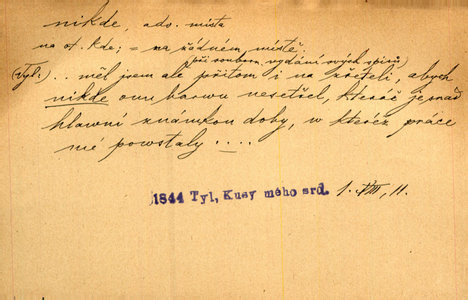 nikde, adv. místa
na ot. kde; = na žádném místě:
(při soubor. vydání svých spisů)
(Tyl:) .. měl jsem ale přitom i na zřeteli, abych
nikde onu barwu nesetřel, kteráž je snad
hlawní známkou doby, w kteréž práce
mé powstaly ....
1844 Tyl, Kusy mého srd. 1. VIII, 11.